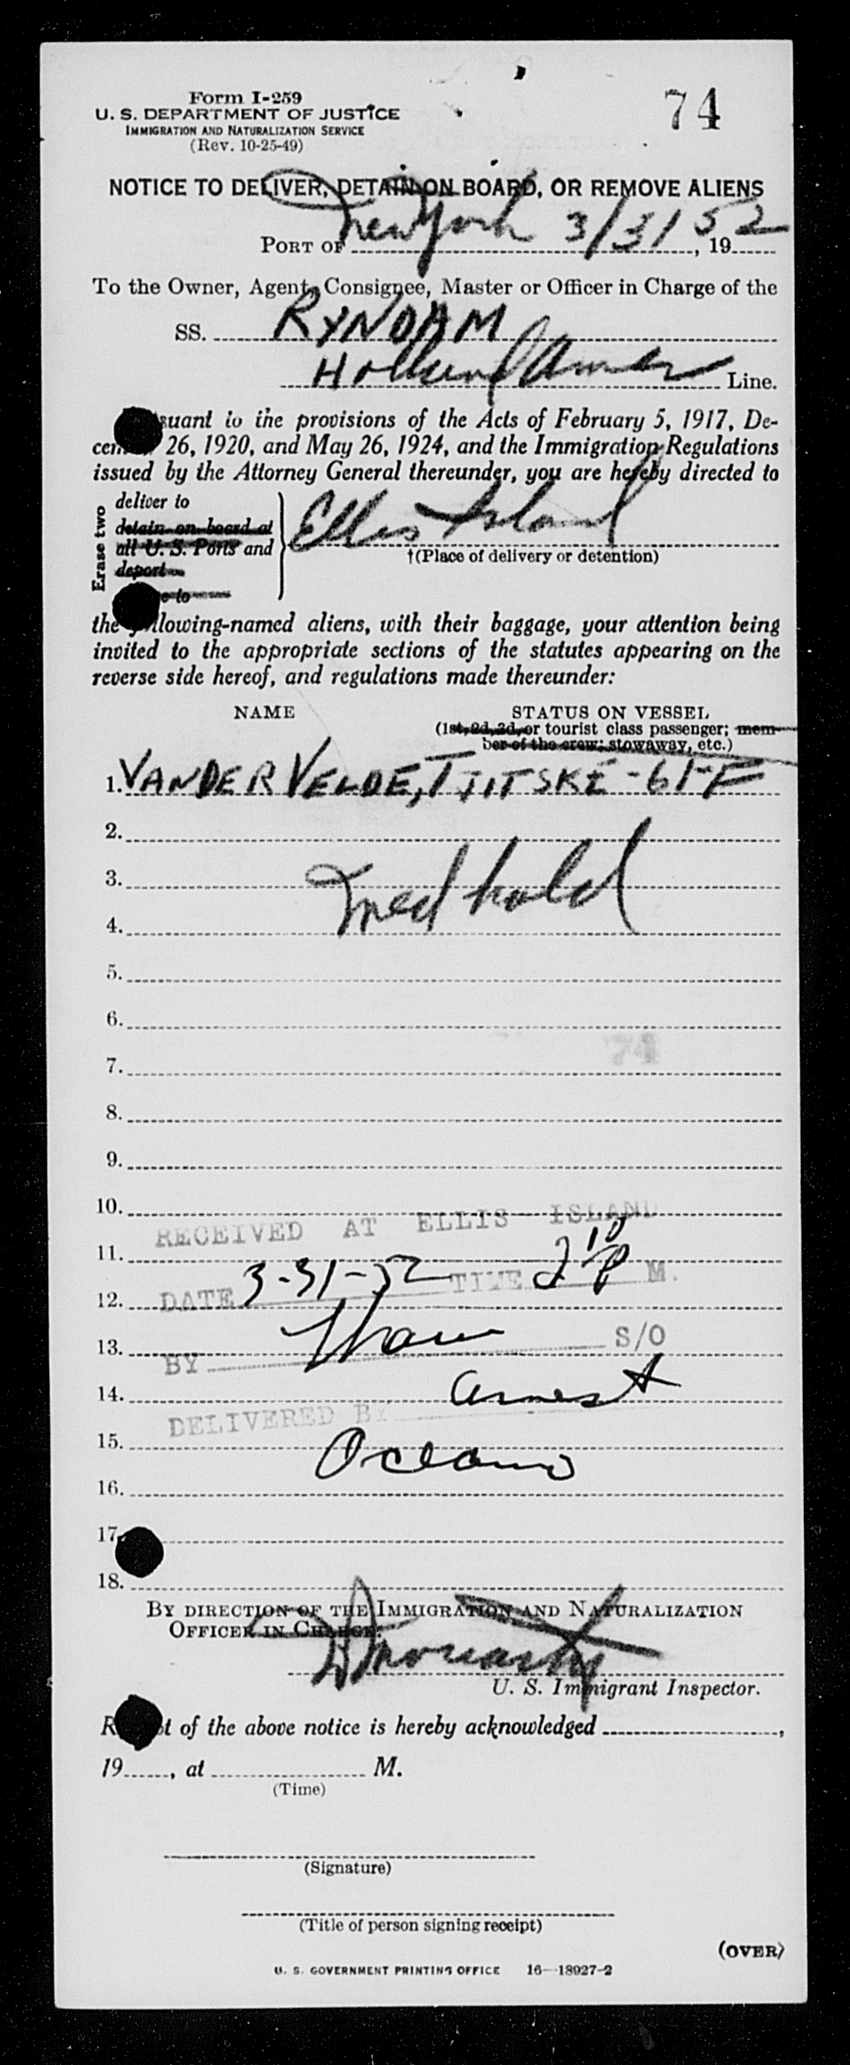 Form I-259
74
U. S. DEPARTMENT OF JUSTICE
IMMIGRATION AND NATURALIZATION SERVICE
(Rev. 10-25-49)
NOTICE TO DELIVER, DETAIN ON BOARD, OR REMOVE ALIENS
PORT OF New York 3/31, 1952
To the Owner, Agent, Consignee, Master or Officer in Charge of the
SS. RYNDAM
Holland Amer Line.
suant to the provisions of the Acts of February 5, 1917, De-
cem 26, 1920, and May 26, 1924, and the Immigration Regulations
issued by the Attorney General thereunder, you are hereby directed to
Erase two
deliver to
detain on board at
all U. S. Ports and
deport
e to
Ellis Island
†(Place of delivery or detention)
the following-named aliens, with their baggage, your attention being
invited to the appropriate sections of the statutes appearing on the
reverse side hereof, and regulations made thereunder:
NAME STATUS ON VESSEL
(1st, 2d, 3d, or tourist class passenger; mem-
ber of the crew; stowaway, etc.)
1. VANDER VELDE, TJITSKE - 61-F
2.
3. Med hold
4.
5.
6.
74
7.
8.
9.
10.
RECEIVED AT ELLIS ISLAND
11.
DATE 3-31-52 TIME 2 10 P M.
12.
13. S/O
BY
14.
DELIVERED BY
15.
16.
17.
18.
BY DIRECTION OF THE IMMIGRATION AND NATURALIZATION
OFFICER IN CHARGE.
U. S. Immigrant Inspector.
R t of the above notice is hereby acknowledged ,
19 , at M.
(Time)
(Signature)
(Title of person signing receipt)
(OVER)
U. S. GOVERNMENT PRINTING OFFICE 16—18927-2